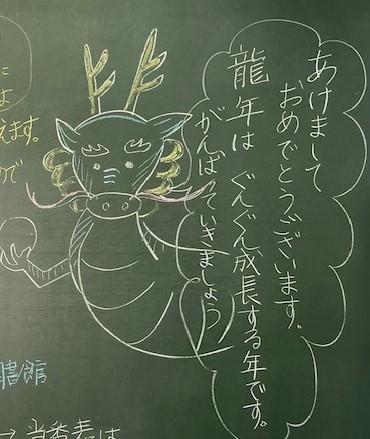 あけまして
おめでとうございます。
龍年は ぐんぐん成長する年です。
がんばっていきましょう
に
よ
えます。
ので
書館
→ 当番表は